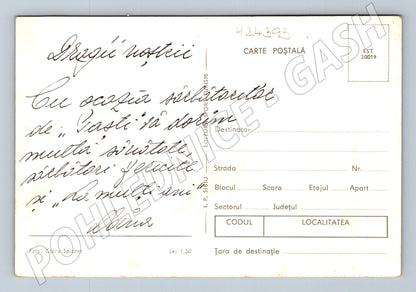 424393
Dragii noștri
CARTE POȘTALĂ
EST
20019
Cu ocazia sărbătorilor
de „Paști" vă dorim
multă sănătate,
sărbători fericite
și „La mulți ani"
EDITURA SPORT-TURISM
I. P. SIBIU
Destinatar
Strada Nr.
Blocul Scara Etajul Apart
Sectorul Județul
CODUL LOCALITATEA
Țara de destinație
Lei 1,50
POHLEDNICE - GASH